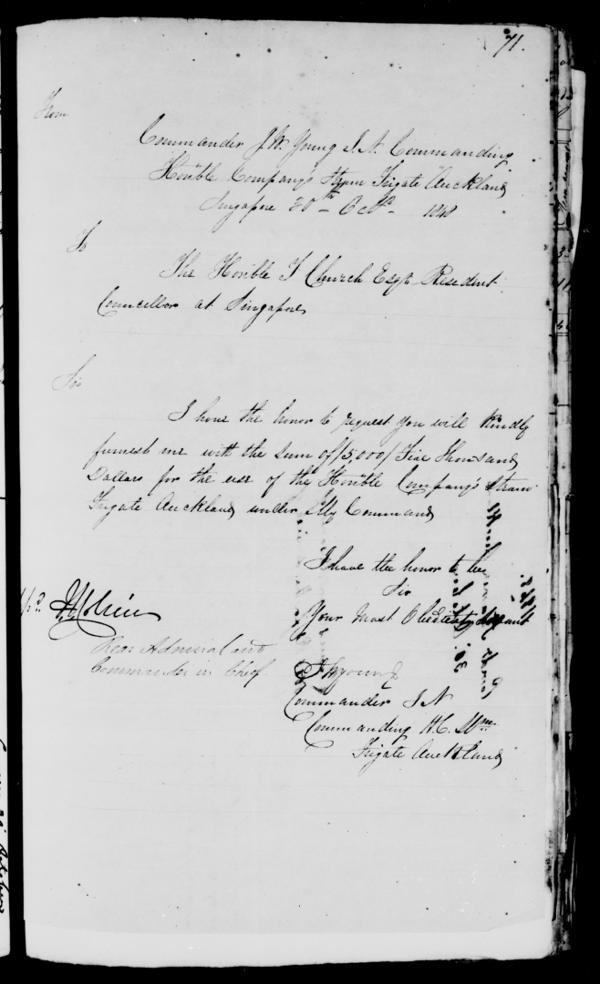 71.
From
Commander J.W. Young I.N. Commanding
Honble Company's Steam Frigate Auckland
Singapore 20th Octr 1848
To
The Honble T Church Esqr Resedent
Councellor at Singapore
Sir
I have the honor to request you will kindly
furnish me with the sum of /5000/ Five Thousand
Dollars for the use of the Honble Company's Steam
Frigate Auckland under My Command
I have the honor to be
Sir
Your Most Obedient Servant
Rear Admiral and
Commander in Chief
JWYoung
Commander I.N
Commanding H.C. Stm
Frigate Auckland